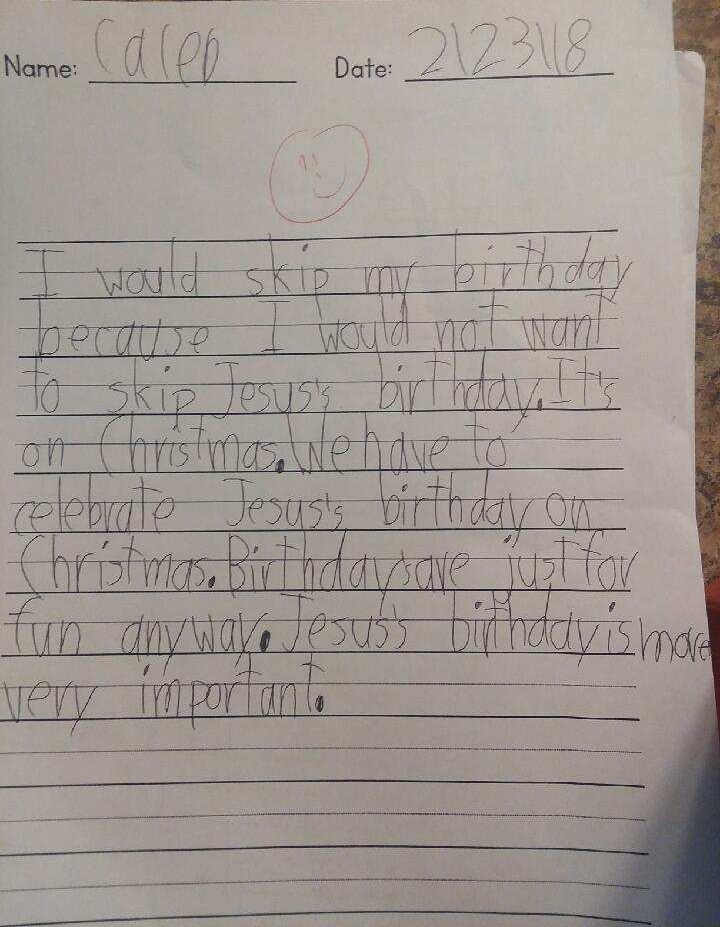 Name: Caleb Date: 2\23\18
I would skip my birthday
because I would not want
to skip Jesus's birthday. It's
on Christmas. We have to
celebrate Jesus's birthday on
Christmas. Birthdays are just for
fun anyway. Jesus's birthday is more
very important.